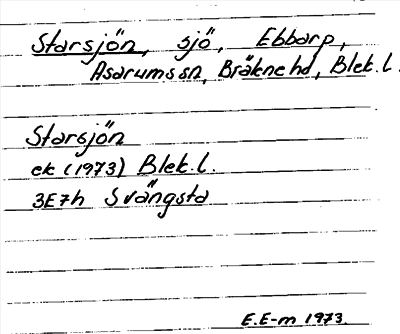 Starsjön, sjö, Ebbarp,
Asarums sn, Bräkne hd, Blek.l.
Starsjön
ek (1973) Blek.l.
3E7h Svängsta
E.E-m 1973.